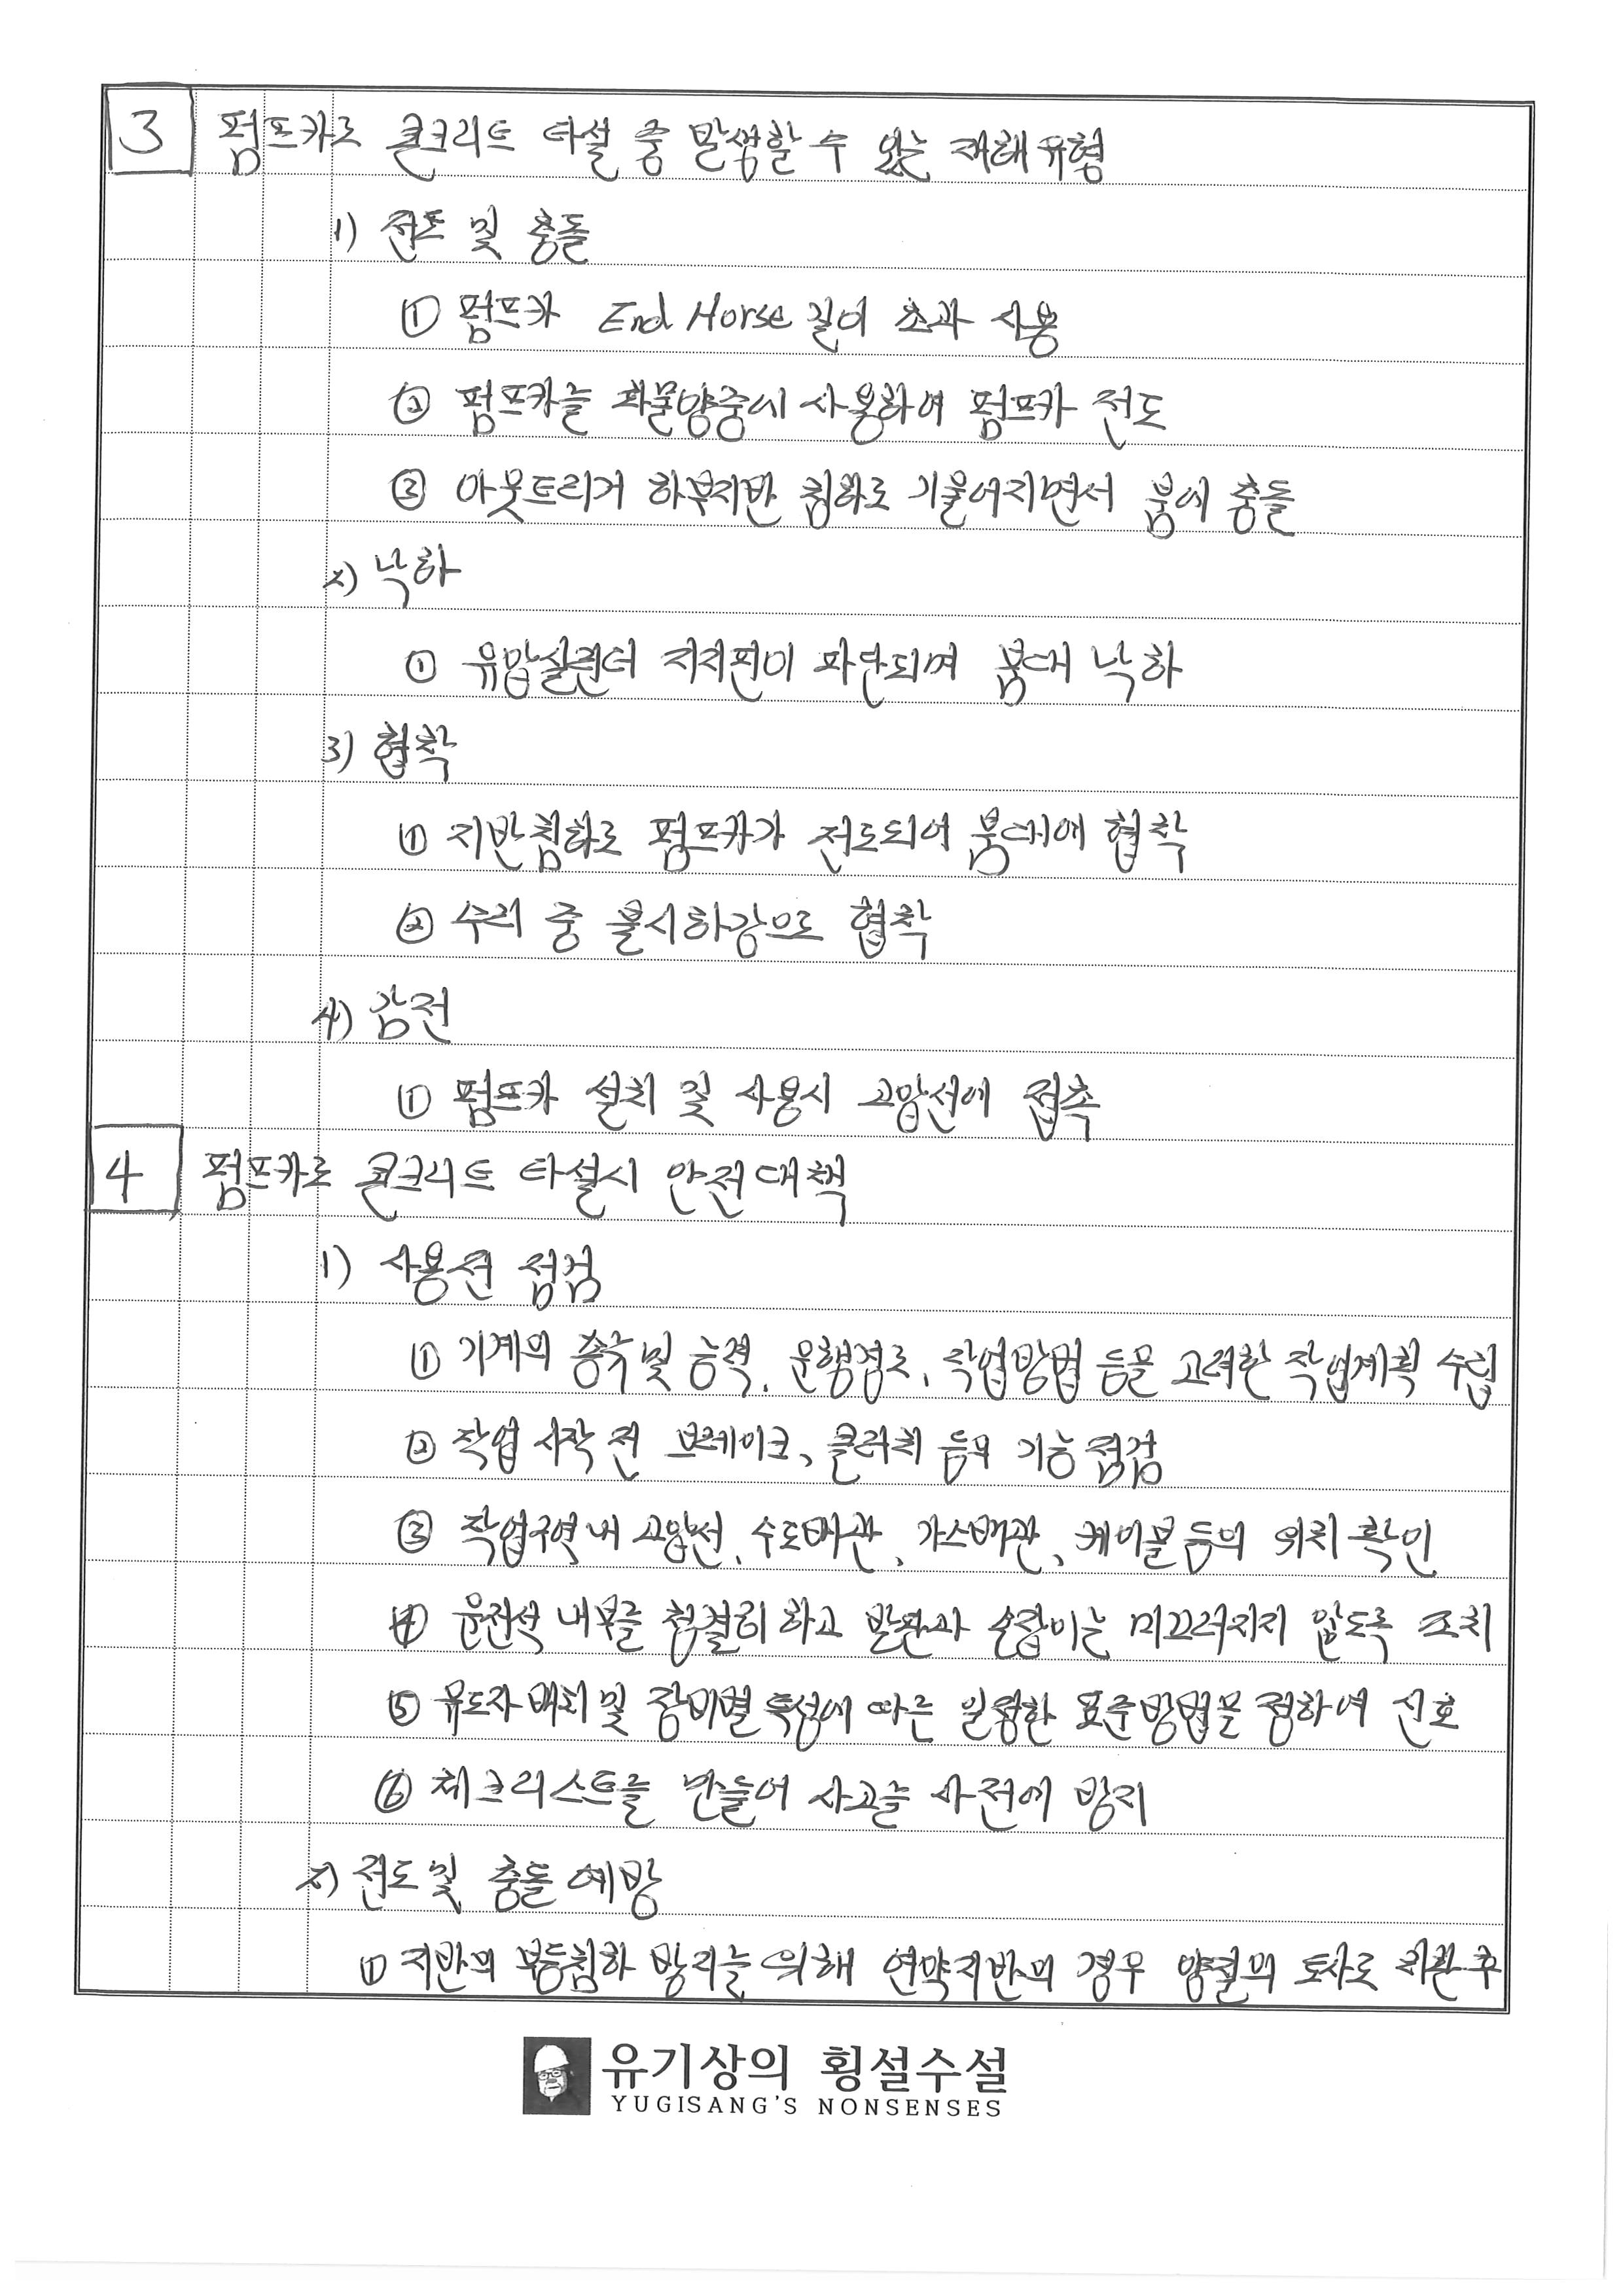 3 펌프카로 콘크리트 타설 중 발생할 수 있는 재해유형
1) 전도 및 충돌
① 펌프카 End Horse 길이 초과 사용
② 펌프카를 화물양중에 사용하여 펌프카 전도
③ 아웃트리거 하부지반 침하로 기울어지면서 붐에 충돌
2) 낙하
① 유압실린더 지지핀이 파단되며 붐대 낙하
3) 협착
① 지반침하로 펌프카가 전도되어 붐대에 협착
② 수리 중 불시하강으로 협착
4) 감전
① 펌프카 설치 및 사용시 고압선에 접촉
4 펌프카로 콘크리트 타설시 안전대책
1) 사용전 점검
① 기계의 종류 및 능력, 운행경로, 작업방법 등을 고려한 작업계획 수립
② 작업 시작 전 브레이크, 클러치 등의 기능점검
③ 작업구역 내 고압선, 수도배관, 가스배관, 케이블 등의 위치 확인
④ 운전석 내부를 청결히 하고 발판과 손잡이는 미끄러지지 않도록 조치
⑤ 유도자 배치 및 장비별 특성에 따른 일정한 표준방법을 정하여 신호
⑥ 체크리스트를 만들어 사고를 사전에 방지
2) 전도 및 충돌 예방
① 지반의 부등침하 방지를 위해 연약지반의 경우 양질의 토사로 치환 후
유기상의 횡설수설
YUGISANG'S NONSENSES